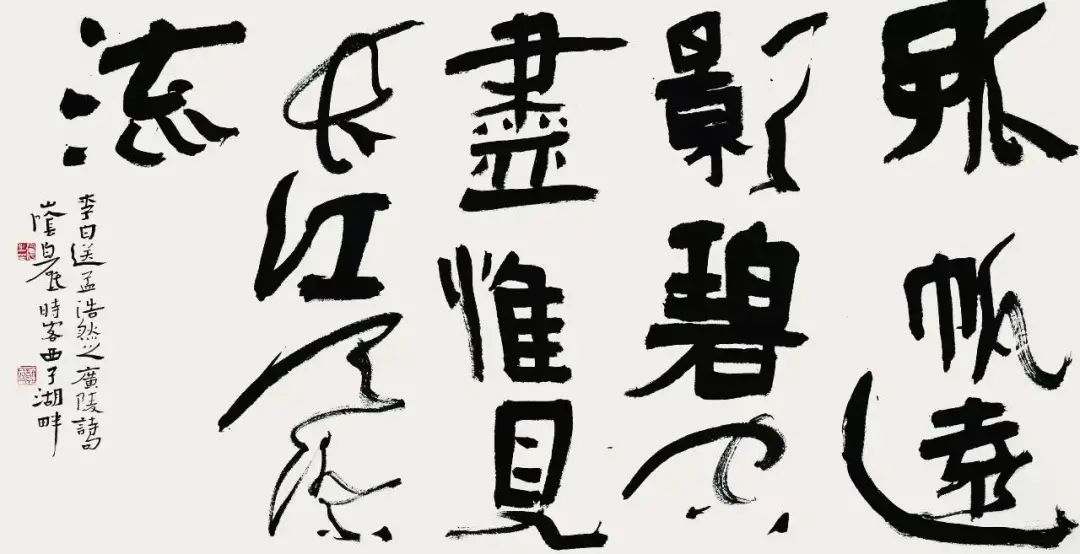 孤帆遠
影碧空
盡惟見
長江天際
流
李白送孟浩然之廣陵詩句
山陰白砥時客西子湖畔